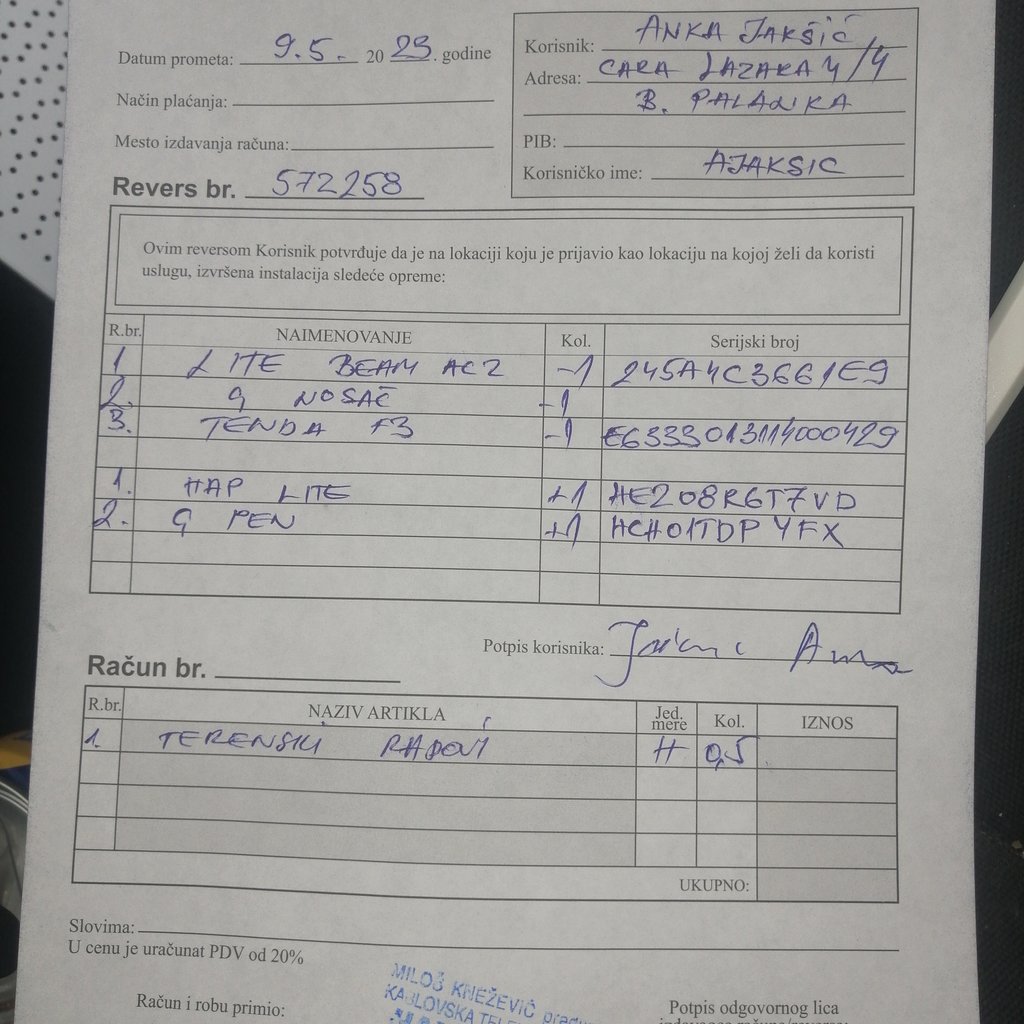 Datum prometa: 9.5. 2025. godine
Način plaćanja:
Mesto izdavanja računa:
Revers br. 572258
Korisnik: ANKA JAKŠIĆ
Adresa: CARA LAZARA 4/4
B. PALANKA
PIB:
Korisničko ime: AJAKSIC
Ovim reversom Korisnik potvrđuje da je na lokaciji koju je prijavio kao lokaciju na kojoj želi da koristi
uslugu, izvršena instalacija sledeće opreme:
R.br. NAIMENOVANJE Kol. Serijski broj
1 LITE BEAM AC2 -1 245A4C3661E9
2. G NOSAČ -1
3. TENDA F3 -1 E6333013114000429
1. HAP LITE +1 HE208R6T7VD
2. G PEN +1 HCH01TDPYFX
Potpis korisnika:
Račun br.
R.br. NAZIV ARTIKLA Jed. mere Kol. IZNOS
1. TERENSKI RADOVI H 0,5
UKUPNO:
Slovima:
U cenu je uračunat PDV od 20%
MILOŠ KNEŽEVIĆ
Račun i robu primio:
Potpis odgovornog lica